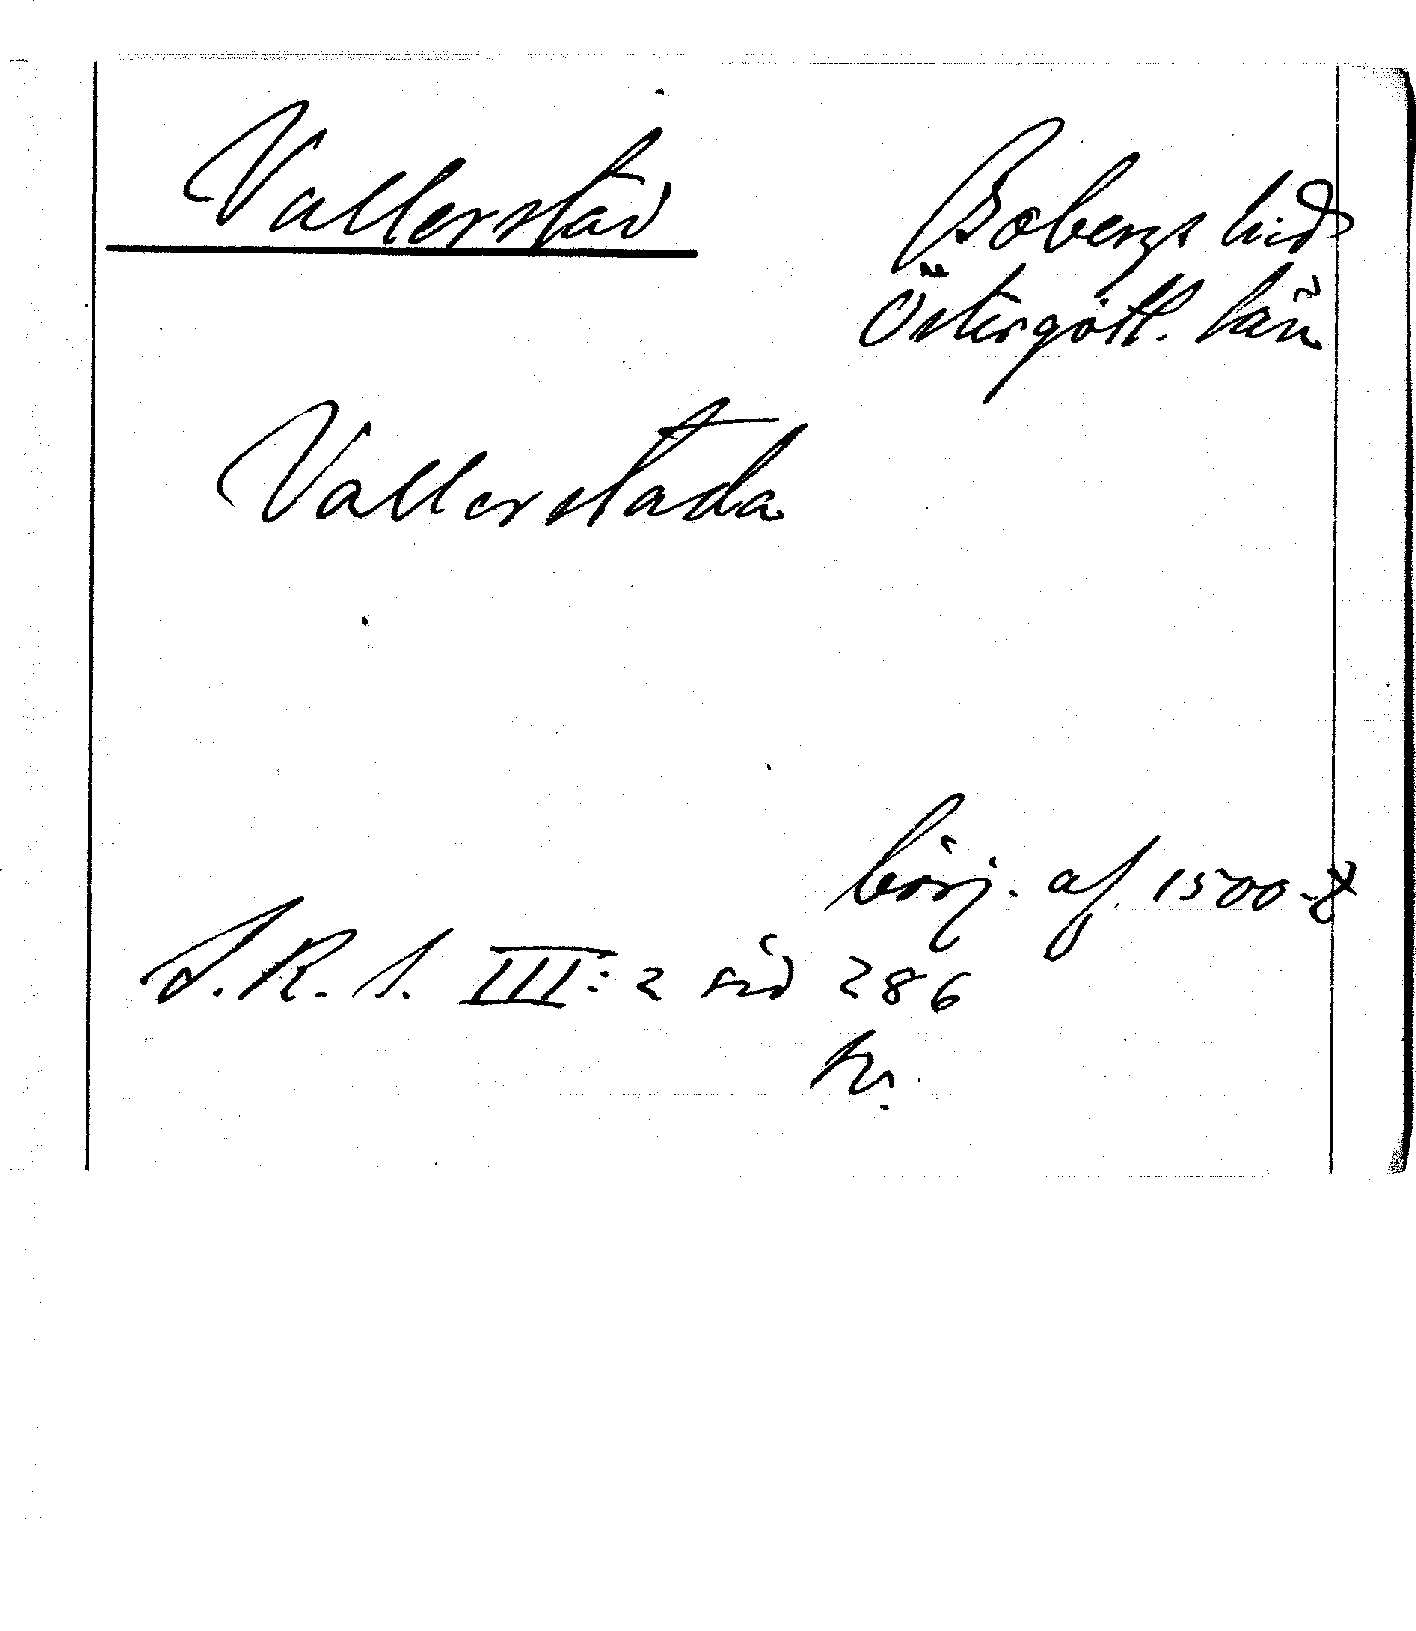 Vallerstad
Bobergs hd
Östergötl. län
Vallerstada
börj. af 1500-t
S. R. S. III: 2 sid 286
tr.